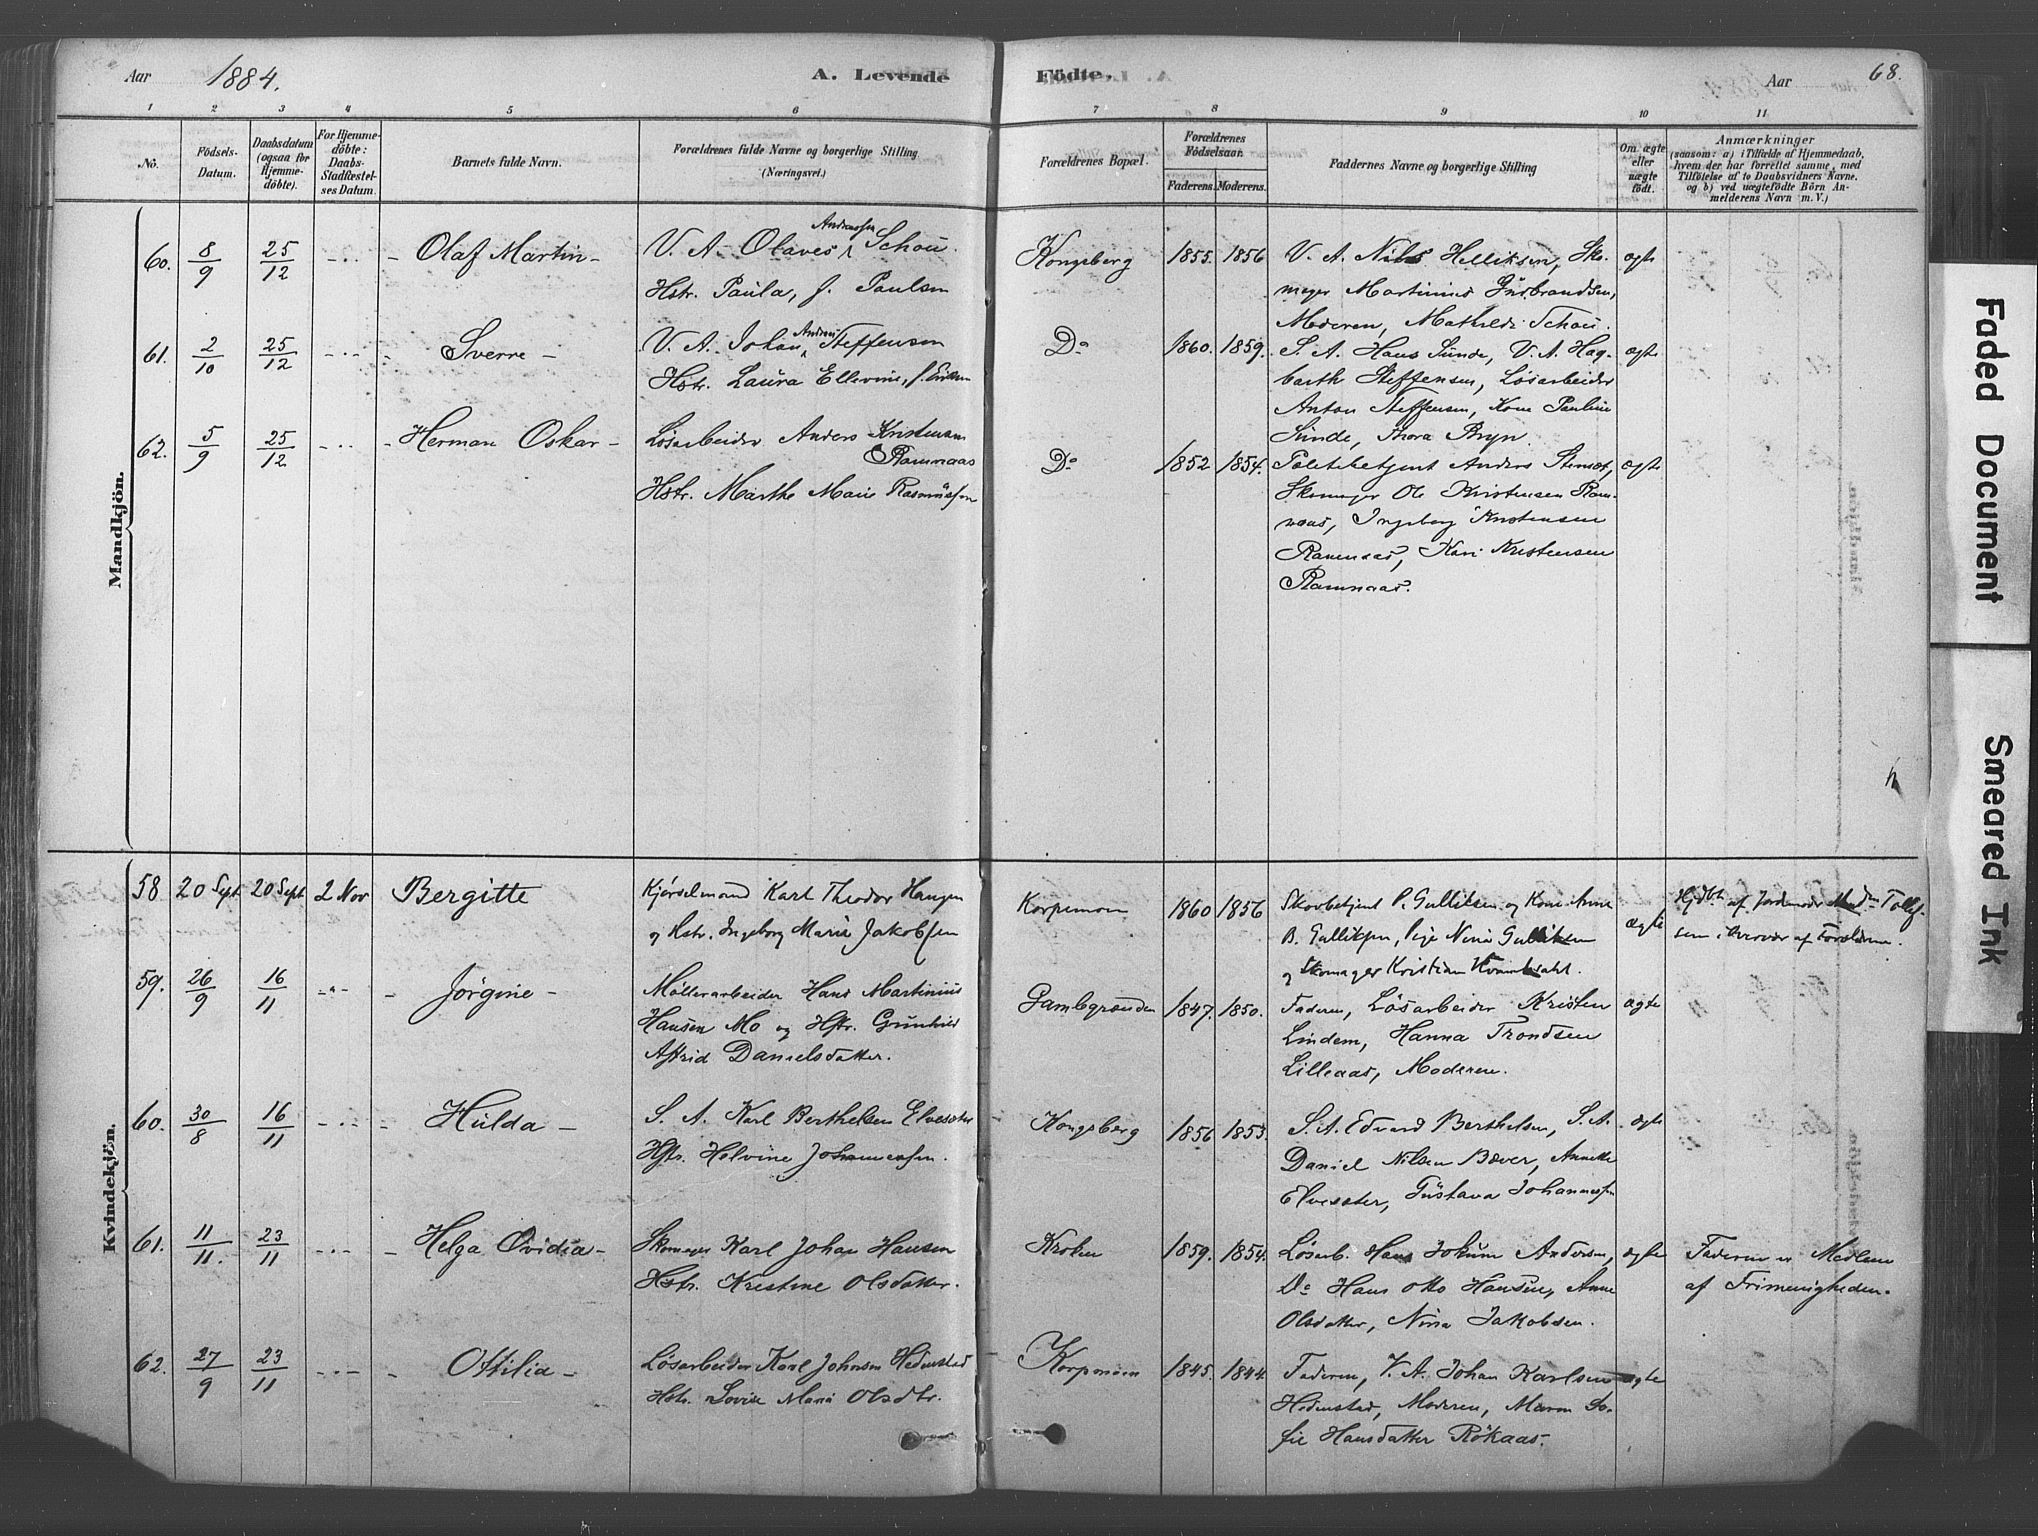 Aar 1884.
A. Levende Födte.
Aar 68.
1 2 3 4 5 6 7 8 9 10 11
No.
Födsels-
Datum.
Daabsdatum
(ogsaa for
Hjemme-
döbte).
For Hjemme-
döbte:
Daabs-
Stadfæstel-
ses Datum.
Barnets fulde Navn.
Forældrenes fulde Navne og borgerlige Stilling
(Næringsvei.)
Forældrenes Bopæl.
Forældrenes
Födselsaar.
Faderens. Moderens.
Faddernes Navne og borgerlige Stilling
Om ægte
eller
uægte
födt.
Anmærkninger
(saasom: a) i Tilfælde af Hjemmedaab,
hvem der har forrettet samme, med
Tilföielse af to Daabsvidners Navne.
og b) ved uægtefödte Börn An-
melderens Navn m. V.)
Mandkjön.
60. 8/9 25/12 Olaf Martin
V. A. Olaves Andreassen Schou.
Hstr. Paula, f. Paulsen
Kongsberg 1855. 1856
V. A. Nils Helliksen, Sko-
mager Martinius Gusbrandsen,
Moderen, Mathilde Schou.
ægte
61. 2/10 25/12 Sverre
V. A. Johan Andreas Steffensen
Hstr. Laura Ellevine, f.
Do 1860. 1859.
S. A. Hans Sunde, V. A. Hag-
barth Steffensen, Løsarbeider
Anton Steffensen, Kone Pauline
Sunde, Thora Bryn.
ægte
62. 5/9 25/12 Herman Oskar
Løsarbeider Anders Kristensen
Ramnaas
Hstr. Marthe Marie Rasmussen
Do 1852 1854.
Politibetjent Anders Stensæt,
Skomager Ole Kristensen Ram-
naas, Ingeborg Kristensen
Ramnaas, Kari Kristensen
Ramnaas.
ægte
Kvindekjön.
58 20 Sept. 20 Sept 2 Nov Bergitte
Kjørselmand Karl Theodor Haugen
og Hstr. Ingeborg Marie Jakobsen
Korpemoen 1860 1856
Skovbetjent P. Gulliksen og Kone Anne
B. Gulliksen, Pige Nina Gulliksen
og Skomager Kristian
ægte
Hjdbt af Jordmoder Mad. Tollef-
sen i Overvær af Forældrene.
59. 26/9 16/11 Jørgine
Møllerarbeider Hans Martinius
Hansen Mo og Hstr. Gunhild
Astrid Danielsdatter.
Gamlegrenden 1847. 1850.
Faderen, Løsarbeider Kristen
Lindem, Hanna Trondsen
Lilleaas, Moderen.
ægte
60. 30/8 16/11 Hulda
S. A. Karl Berthelsen Elvesæter
Hstr. Helvine Johannessen.
Kongsberg 1856 1853.
S. A. Edvard Berthelsen, S. A.
Daniel Nilsen Bæver, Annette
Elvesæter, Gustava Johannessen
ægte
61. 11/11. 23/11 Helga Ovidia
Skomager Karl Johan Hansen
Hstr. Kristine Olsdatter.
Kroken 1859. 1854.
Løsarb. Hans Jokum Andersen,
Do Hans Otto Hansen, Anne
Olsdatter, Nina Jakobsen.
ægte
Faderen er Medlem
af Frimenigheden.
62. 27/9 23/11 Ottilia
Løsarbeider Karl Johnsen Hedenstad
Hstr. Lovise Marie Olsdtr.
Korpemoen 1845. 1844
Faderen, V. A. Johan Karlsen
Hedenstad, Moderen, Maren So-
fie Hansdatter Røkaas.
ægte
Faded Document
Smeared Ink